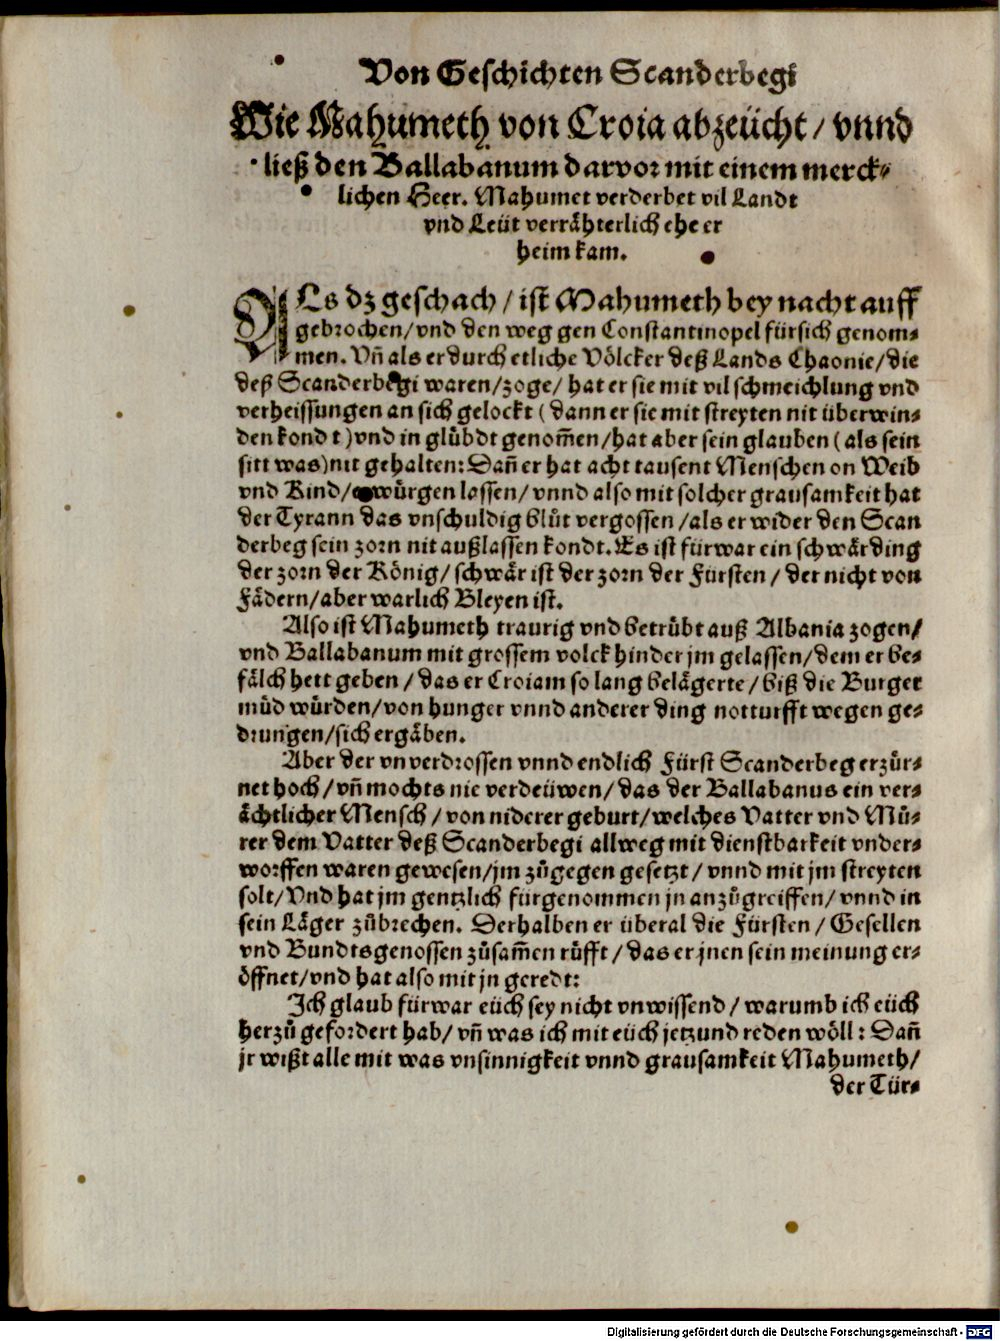 Von Geschichten Scanderbegi
Wie Mahumeth von Croia abzeücht / vnnd
ließ den Ballabanum darvor mit einem merck⸗
lichen Heer. Mahumet verderbet vil Landt
vnd Leüt verrähterlich ehe er
heim kam.
ALs dz geschach / ist Mahumeth bey nacht auff
gebrochen / vnd den weg gen Constantinopel für sich genom⸗
men. Vñ als er durch etliche Völcker deß Lands Chaonie / die
deß Scanderbegi waren / zoge / hat er sie mit vil schmeichlung vnd
verheissungen an sich gelockt ( dann er sie mit streyten nit überwin⸗
den kondt ) vnd in glübdt genom̃en / hat aber sein glauben ( als sein
sitt was ) nit gehalten: Dañ er hat acht tausent Menschen on Weib
vnd Kind / erwürgen lassen / vnnd also mit solcher grausamkeit hat
der Tyrann das vnschuldig blůt vergossen / als er wider den Scan
derbeg sein zorn nit außlassen kondt. Es ist fürwar ein schwär ding
der zorn der König / schwär ist der zorn der Fürsten / der nicht von
Fädern / aber warlich Bleyen ist.
Also ist Mahumeth traurig vnd betrübt auß Albania zogen /
vnd Ballabanum mit grossem volck hinder jm gelassen / dem er be⸗
fälch hett geben / das er Croiam so lang belägerte / biß die Burger
müd würden / von hunger vnnd anderer ding notturfft wegen ge⸗
drungen / sich ergäben.
Aber der vnverdrossen vnnd endlich Fürst Scanderbeg erzür⸗
net hoch / vñ mochts nie verdeüwen / das der Ballabanus ein ver⸗
ächtlicher Mensch / von niderer geburt / welches Vatter vnd Mů⸗
rer dem Vatter deß Scanderbegi allweg mit dienstbarkeit vnder⸗
worffen waren gewesen / jm zůgegen gesetzt / vnnd mit jm streyten
solt / Vnd hat jm gentzlich fürgenommen jn anzůgreiffen / vnnd in
sein Läger zůbrechen. Derhalben er überal die Fürsten / Gesellen
vnd Bundtsgenossen zůsam̃en růfft / das er jnen sein meinung er⸗
öffnet / vnd hat also mit jn geredt:
Ich glaub fürwar eüch sey nicht vnwissend / warumb ich eüch
herzů gefordert hab / vñ was ich mit eüch jetzund reden wöll: Dañ
jr wißt alle mit was vnsinnigkeit vnnd grausamkeit Mahumeth /
der Tür⸗
Digitalisierung gefördert durch die Deutsche Forschungsgemeinschaft - DFG